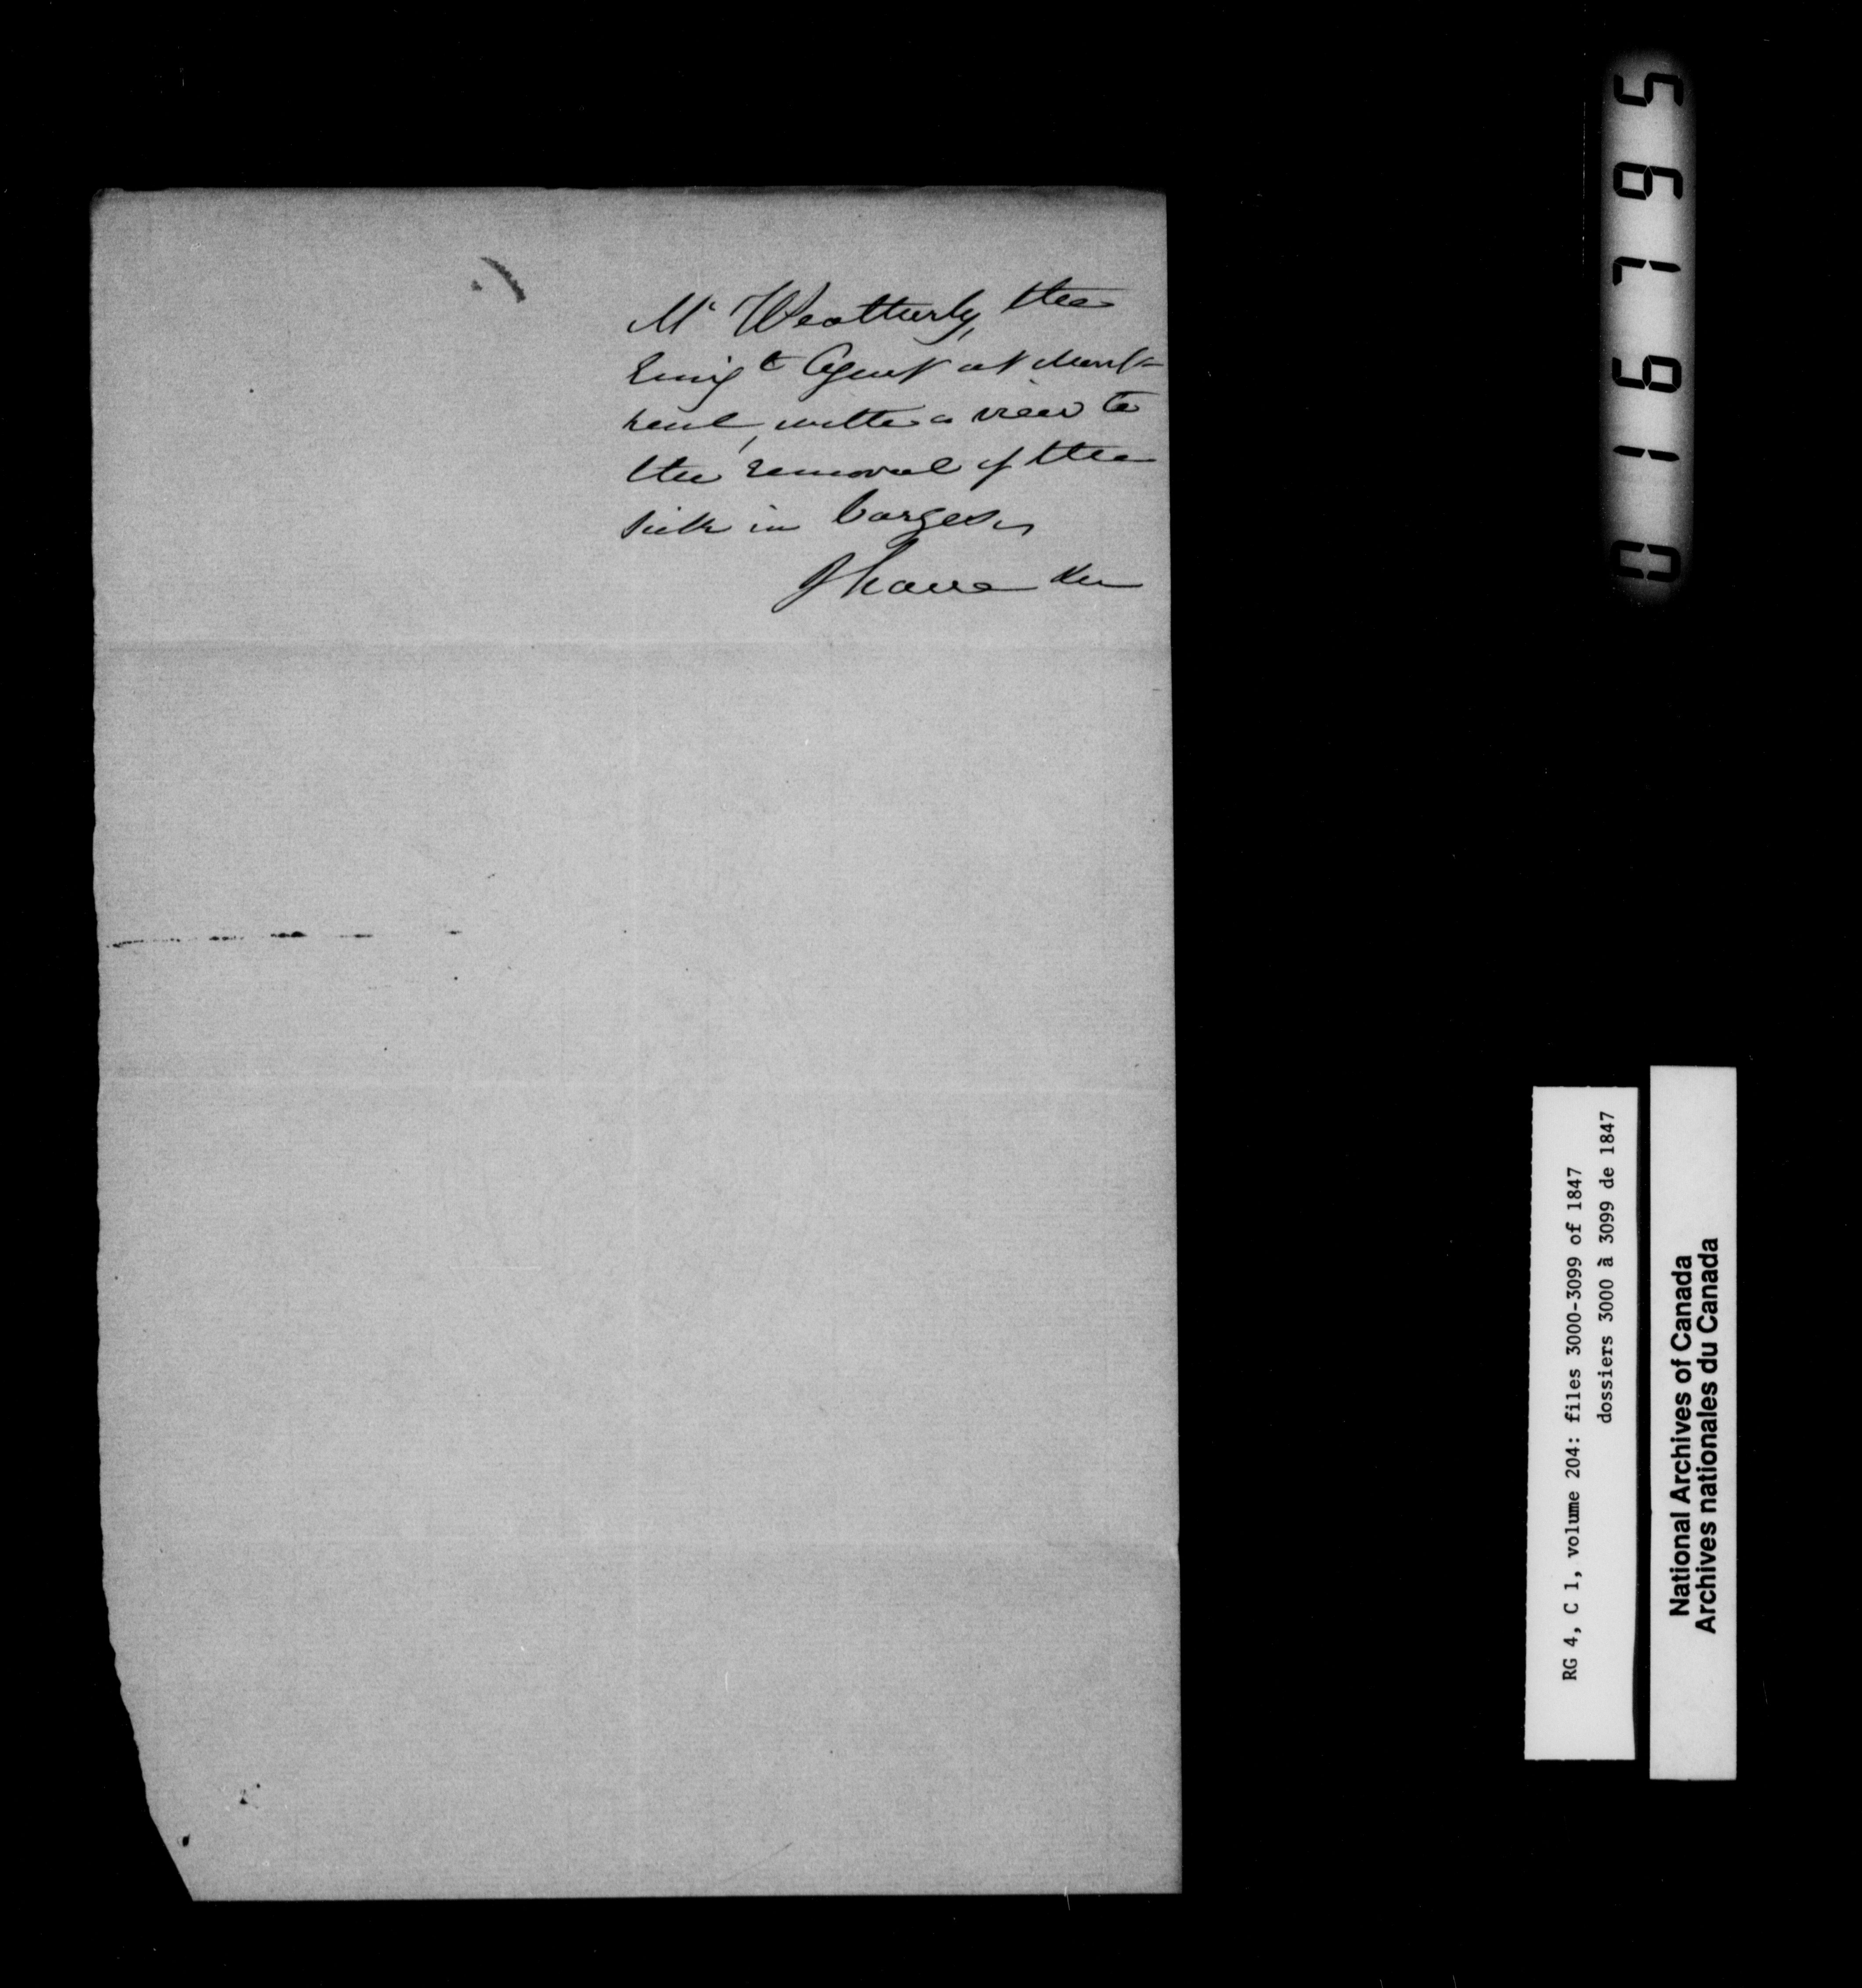 Mr Weatherly, the
Emigt Agent at Mont-
real, with a view to
the removal of the
sick in barges,
I have &c
016795
RG 4, C 1, volume 204: files 3000-3099 of 1847
dossiers 3000 à 3099 de 1847
National Archives of Canada
Archives nationales du Canada